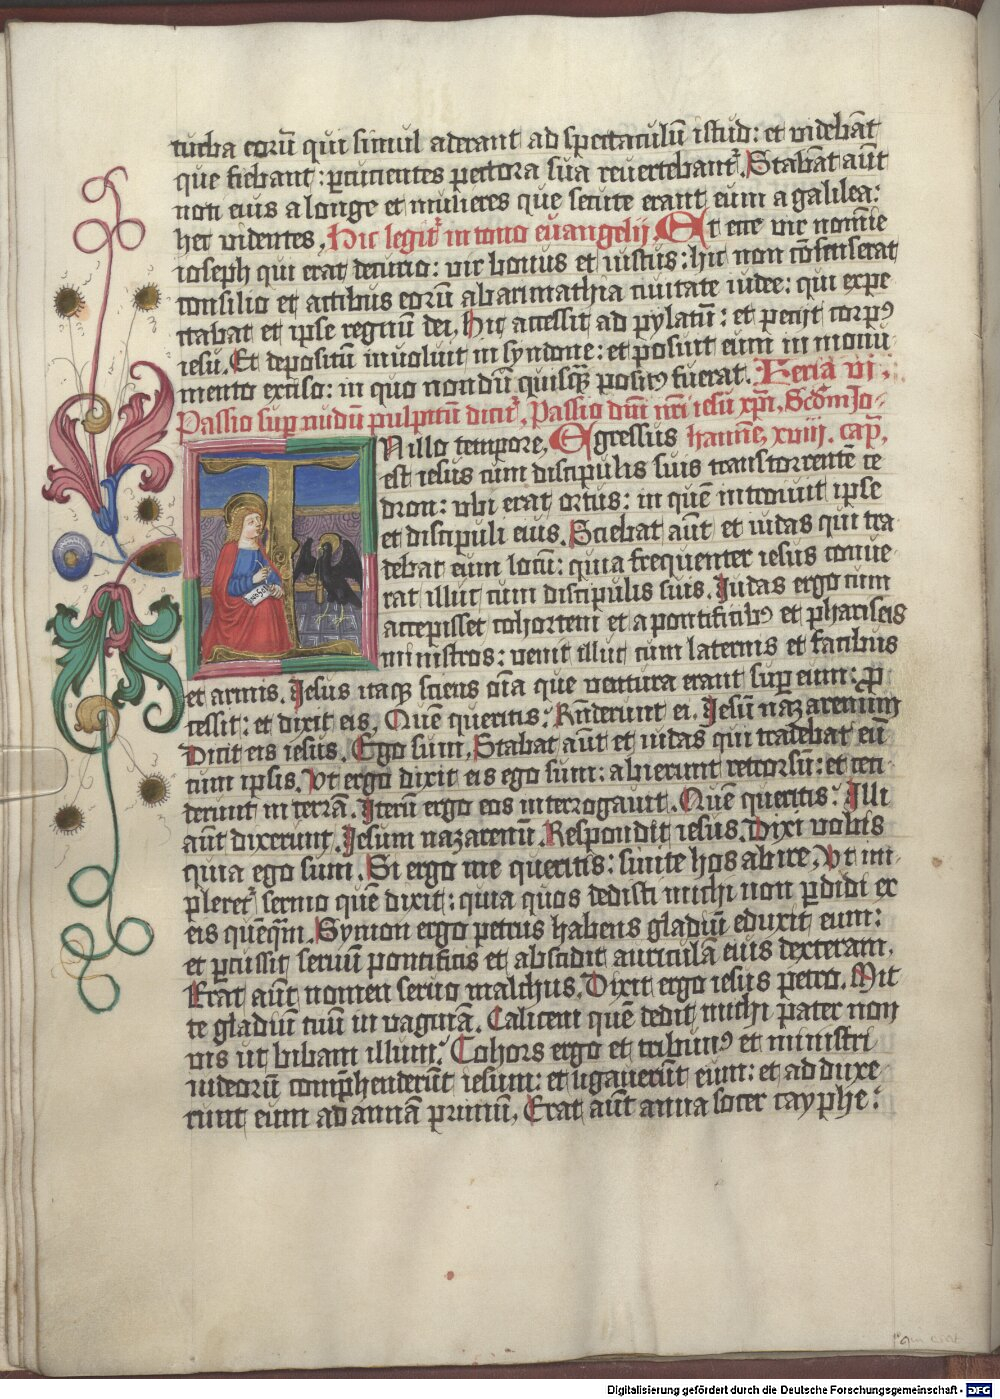 turba eorū qui simul aderant ad spectaculū istud: et videbāt
que fiebant: ꝑcucientes pectora sua revertebant᷑. Stabāt aūt
noti eius a longe et mulieres que secute erant eum a galilea:
hec videntes. Hic legit᷑ in tono euangelij. Et ecce vir nomīe
ioseph qui erat decurio: vir bonus et iustus: hic non cōsenserat
consilio et actibus eorū ab arimathia civitate iudee: qui expe
ctabat et ipse regnū dei. Hic accessit ad pylatū: et petijt corpꝰ
iesu. Et depositū involuit in syndone: et posuit eum in monu-
mento exciso: in quo nondū quisqꝫ positꝰ fuerat. Feria vi.
Passio suꝑ nudū pulpitū dicit᷑. Passio dn̄i nr̄i iesu xp̄i. Scd̄m Jo-
Nillo tempore, Egressus hannē. xviij. cap̄.
est iesus cum discipulis suis trans torrentē ce
dron: ubi erat ortus: in quē introiuit ipse
et discipuli eius. Sciebat aūt et iudas qui tra
debat eum locū: quia frequenter iesus conve-
rat illuc cum discipulis suis. Judas ergo cum
accepisset cohortem et a pontificibꝰ et phariseis
ministros: venit illuc cum laternis et facibus
et armis. Jesus itaqꝫ sciens oīa que ventura erant suꝑ eum: ꝓ
cessit: et dixit eis. Quē queritis? Rn̄derunt ei. Jesū nazarenum
Dicit eis iesus. Ego sum. Stabat aūt et iudas qui tradebat eū
cum ipsis. Vt ergo dixit eis ego sum: abierunt retrorsū: et ceci-
derunt in terrā. Iterū ergo eos interrogavit. Quē queritis? Illi
aūt dixerunt. Jesum nazarenū. Respondit iesus. Dixi vobis
quia ego sum. Si ergo me queritis: sinite hos abire. Vt im-
pleret᷑ sermo quē dixit: quia quos dedisti michi non ꝑdidi ex
eis quēqm̄. Symon ergo petrus habens gladiū eduxit eum:
et ꝑcussit servū pontificis et abscidit auriculā eius dexteram.
Erat aūt nomen servo malchus. Dixit ergo iesus petro. Mit
te gladiū tuū in vaginā. Calicem quē dedit michi pater non
vis ut bibam illum? Cohors ergo et tribunꝰ et ministri
iudeorū comp̄henderūt iesum: et ligaverūt eum: et adduxe
runt eum ad annā primū. Erat aūt anna socer cayphe:
Digitalisierung gefördert durch die Deutsche Forschungsgemeinschaft - DFG